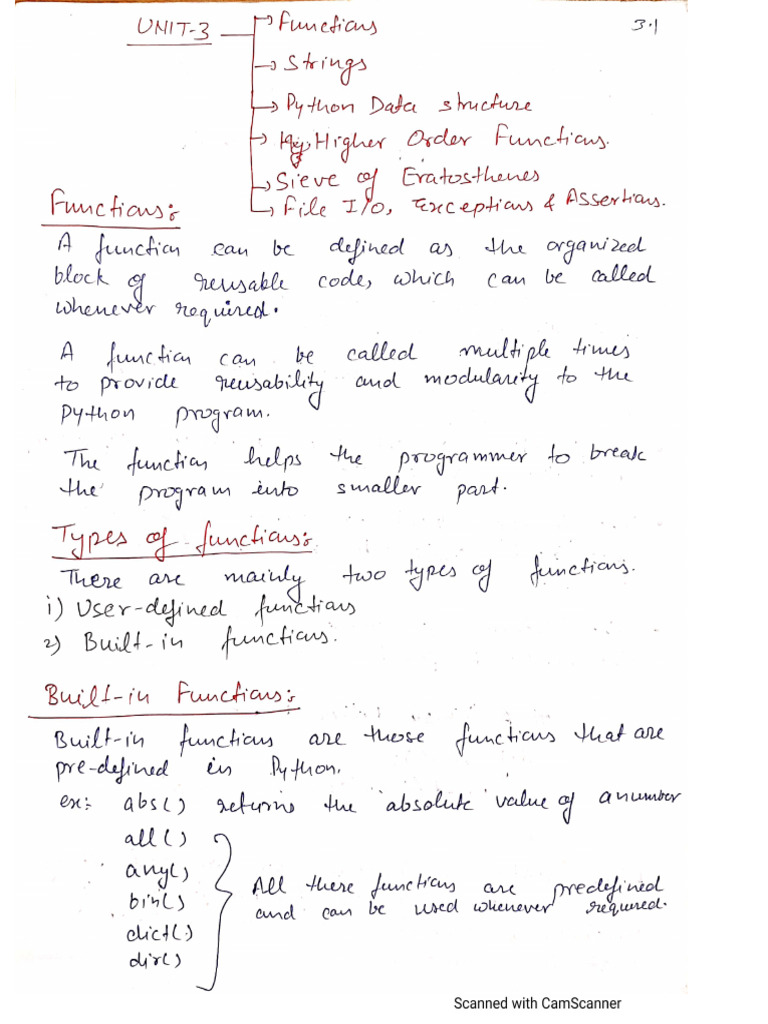 UNIT-3
3.1
→ Functions
→ Strings
→ Python Data structure
→ Higher Order Functions.
→ Sieve of Eratosthenes
→ File I/O, Exceptions & Assertions.
Functions:
A function can be defined as the organized
block of reusable code, which can be called
whenever required.
A function can be called multiple times
to provide reusability and modularity to the
Python program.
The function helps the programmer to break
the program into smaller part.
Types of functions:
There are mainly two types of functions.
1) User-defined functions
2) Built-in functions.
Built-in Functions:
Built-in functions are those functions that are
pre-defined in Python.
ex: abs() returns the absolute value of a number
all()
any()
bin()
dict()
dir()
All these functions are predefined
and can be used whenever required.
Scanned with CamScanner